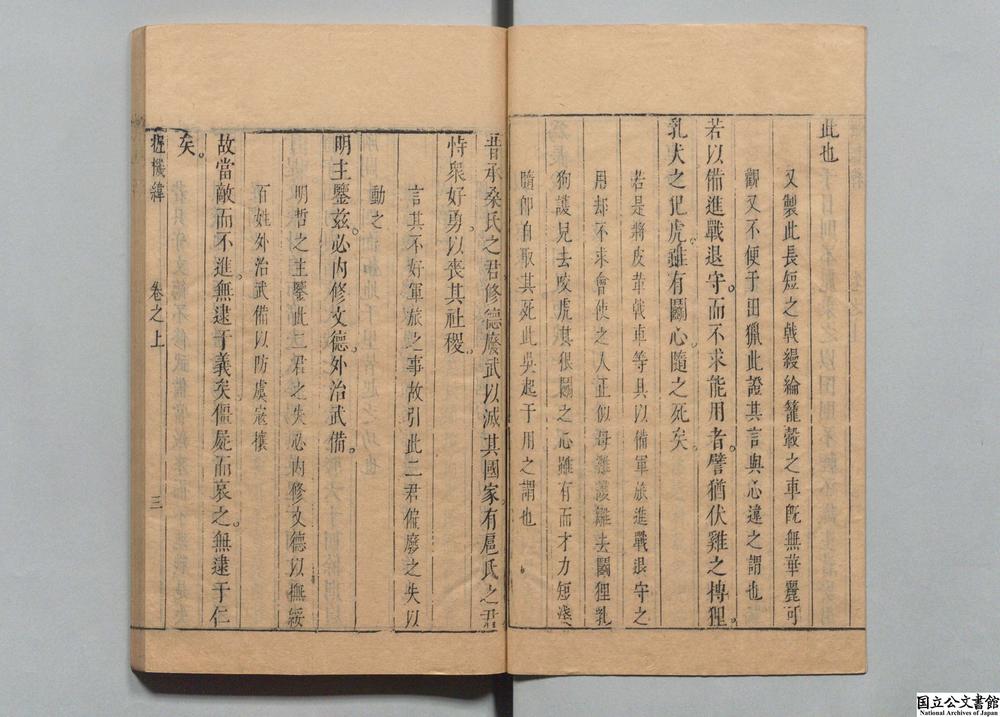 此也
又製此長短之戟縵綸籠轂之車既無華麗可
觀又不便于田獵此證其言與心違之謂也
若以備進戰退守而不求能用者譬猶伏雞之搏狸
乳犬之犯虎雖有鬭心隨之死矣
若是將皮革戟車等具以備軍旅進戰退守之
用却不求會使之人正似母雞護雛去鬭狸乳
狗護兒去咬虎其狠鬭之心雖有而才力短淺
隨即自取其死此吳起于用之謂也
昔承桑氏之君修德廢武以滅其國家有扈氏之君
恃衆好勇以喪其社稷
言其不好軍旅之事故引此二君僱廢之失以
動之
明主鑒兹必內修文德外治武備
明哲之主鑒此二君之失必內修文德以撫綏
百姓外治武備以防虞寇攘
故當敵而不進無逮于義矣僵屍而哀之無逮于仁
矣
握機緯 卷之上 三
国立公文書館
National Archives of Japan